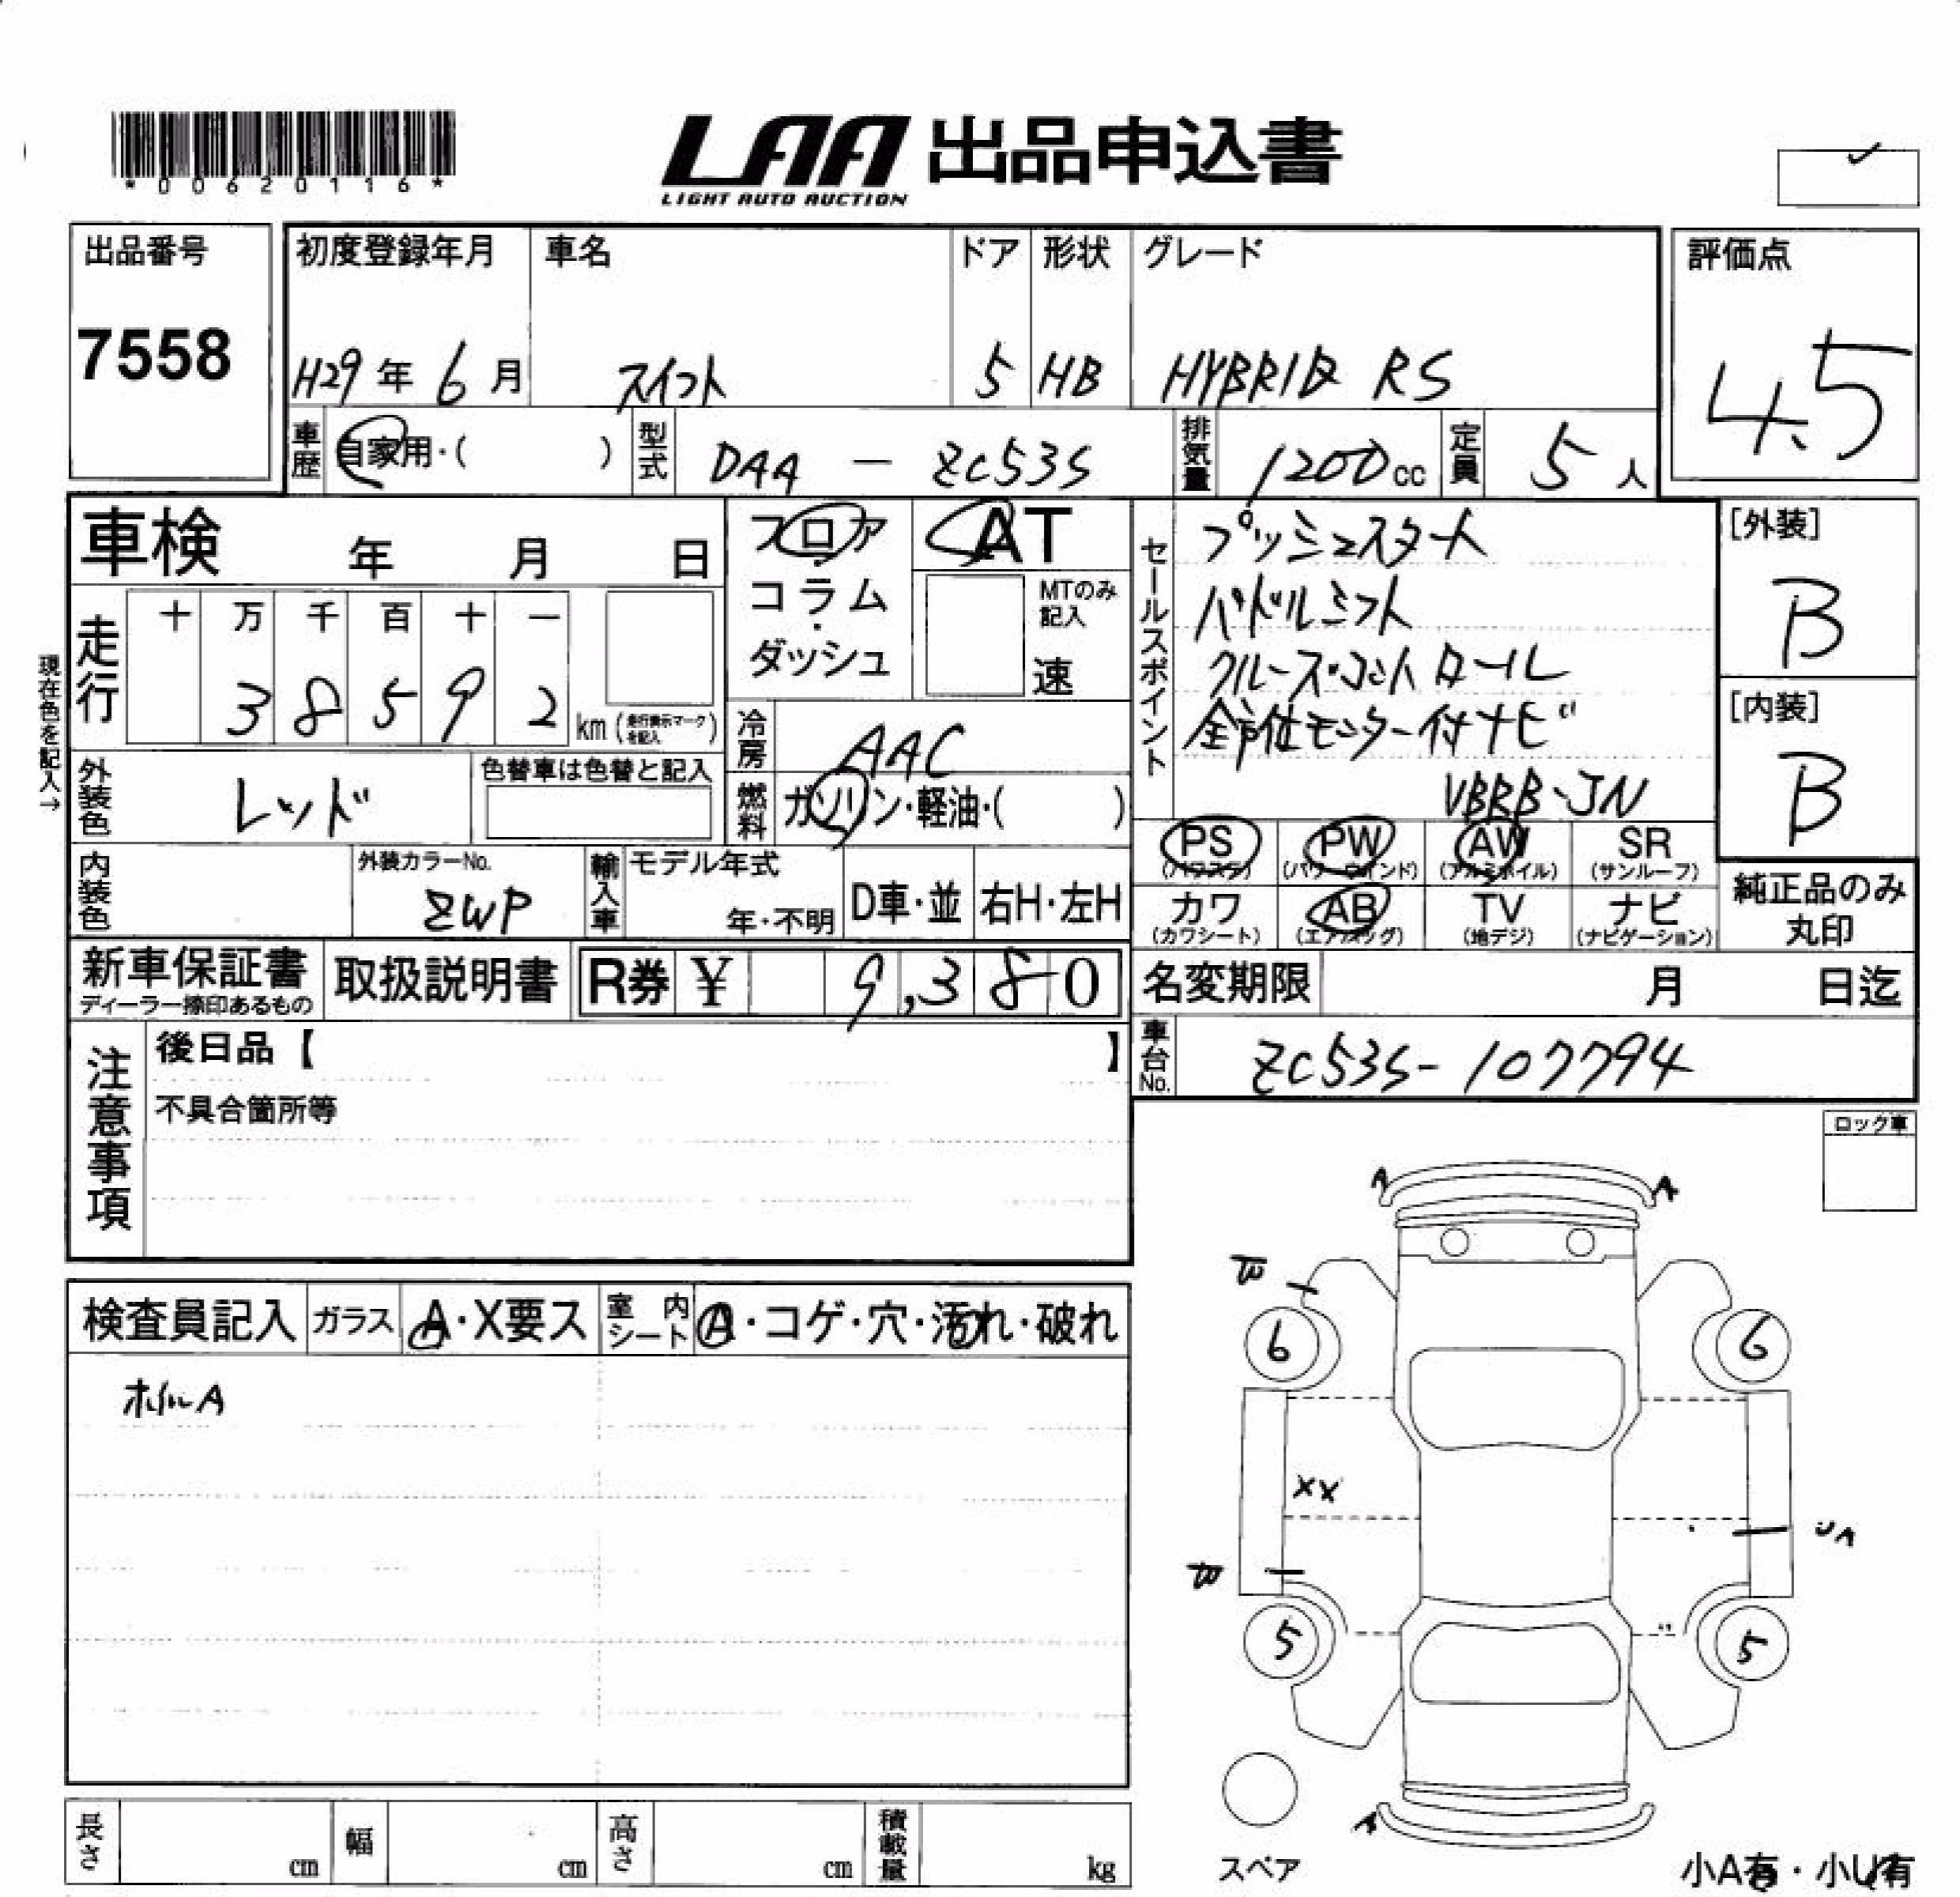 *00620116*
LAA 出品申込書
LIGHT AUTO AUCTION
出品番号
7558
初度登録年月
H29年6月
車名
スイフト
ドア
5
形状
HB
グレード
HYBRID RS
評価点
4.5
車歴
自家用・( )
型式
DAA - ZC53S
排気量
1200cc
定員
5人
車検 年 月 日
現在色を記入→
走行
十 万 千 百 十 一
3 8 5 9 2
km(走行表示マークを記入)
フロア・コラム・ダッシュ
AT
MTのみ記入
速
冷房
AAC
燃料
ガソリン・軽油・( )
外装色
レッド
色替車は色替と記入
内装色
外装カラーNo.
ZWP
輸入車
モデル年式
年・不明
D車・並
右H・左H
セールスポイント
プッシュスタート
パドルシフト
クルーズ・コントロール
全方位モニター付ナビ
[外装]
B
[内装]
B
PS
(パワステ)
PW
(パワーウインド)
AW
(アルミホイル)
SR
(サンルーフ)
カワ
(カワシート)
AB
(エアバッグ)
TV
(地デジ)
ナビ
(ナビゲーション)
純正品のみ
丸印
新車保証書
ディーラー捺印あるもの
取扱説明書
R券 ¥ 9,380
名変期限 月 日迄
車台No.
ZC53S-107794
注意事項
後日品【 】
不具合箇所等
ロック車
検査員記入
ガラス
A・X要ス
室内シート
A・コゲ・穴・汚れ・破れ
ホイルA
A A
6 6
XX
UA
5 5
A
スペア
小A有・小U有
長さ cm
幅 cm
高さ cm
積載量 kg